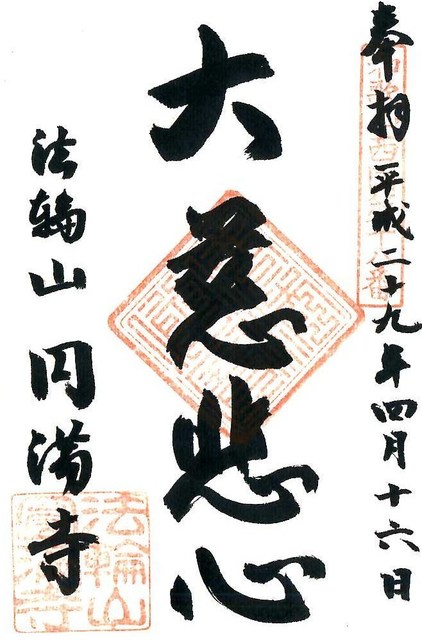 奉拝 平成二十九年四月十六日
大慈悲心
法輪山 円満寺
法輪山
圓満寺